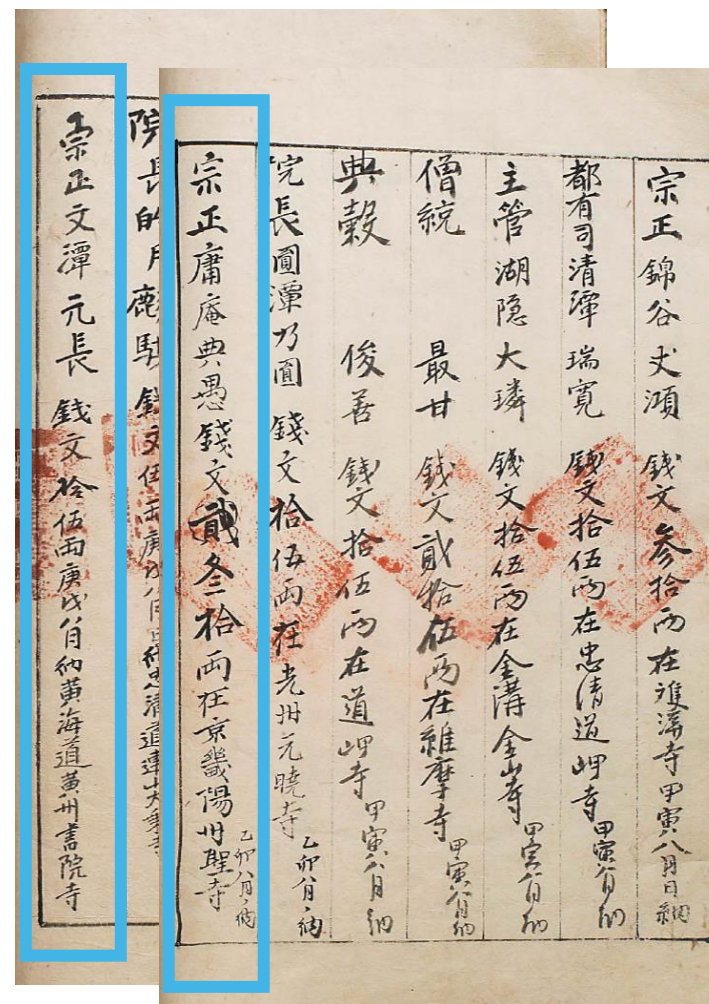 宗正 錦谷 錢文叁拾兩在雙溪寺 甲寅八月日納
都有司清潭 瑞寬 錢文拾伍兩在忠清道岬寺 甲寅八月納
主管 湖隱大璘 錢文拾伍兩在金溝金山寺 甲寅八月納
僧統 最甘 錢文貳拾伍兩在維摩寺 甲寅八月納
典穀 俊善 錢文拾伍兩在道岬寺 甲寅八月納
院長圓潭乃圓 錢文拾伍兩在光州元曉寺 乙卯八月納
宗正庸庵典愚錢文貳叁拾兩在京畿陽州聖寺 乙卯八月納
院長的月 錢文伍兩庚戌八月
宗正文潭元長 錢文拾伍兩庚戌八月納黃海道黃州書院寺